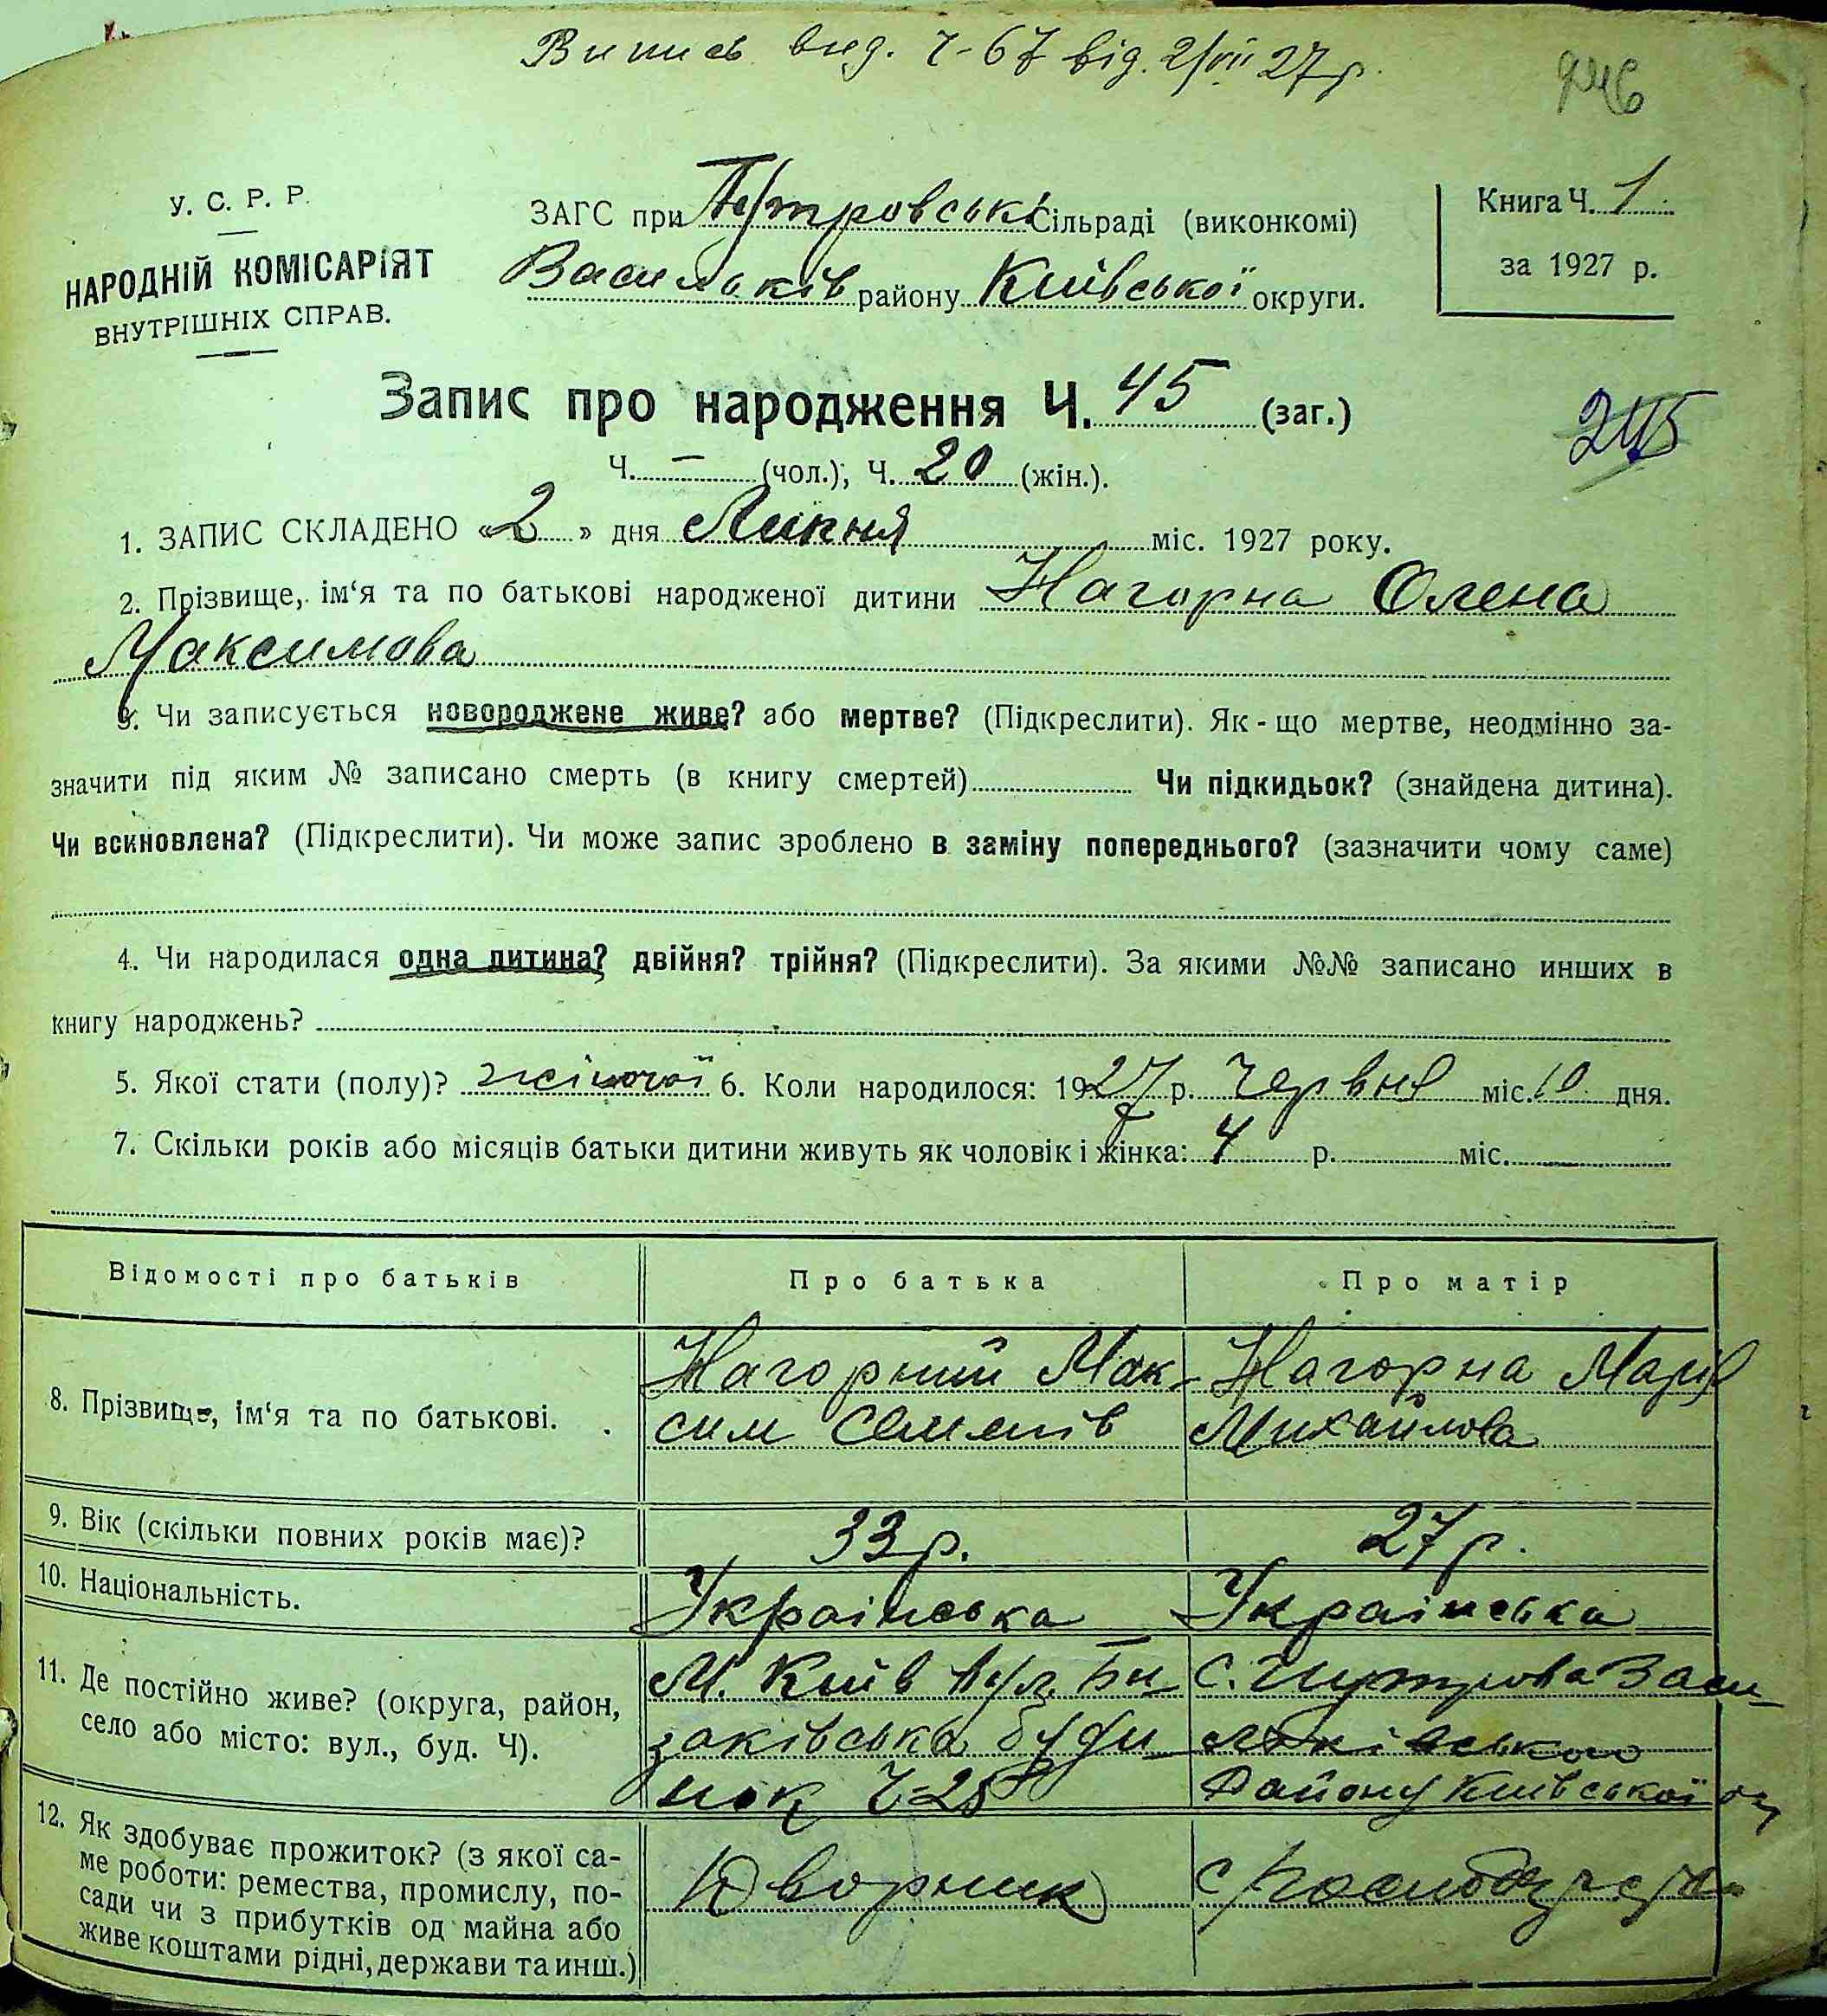 Випись вид. Ч-67 від. 2/VII 27 р.
246
У. С. Р. Р.
НАРОДНІЙ КОМІСАРІЯТ
ВНУТРІШНІХ СПРАВ.
ЗАГС при Сільраді (виконкомі)
Васильків району Київської округи.
Книга Ч. 1
за 1927 р.
Запис про народження Ч. 45 (заг.)
245
Ч. – (чол.); Ч. 20 (жін.).
1. ЗАПИС СКЛАДЕНО «2» дня Липня міс. 1927 року.
2. Прізвище, ім‘я та по батькові народженої дитини Нагорна Олена
Максимова
3. Чи записується новороджене живе? або мертве? (Підкреслити). Як-що мертве, неодмінно за-
значити під яким № записано смерть (в книгу смертей) Чи підкидьок? (знайдена дитина).
Чи всиновлена? (Підкреслити). Чи може запис зроблено в заміну попереднього? (зазначити чому саме)
4. Чи народилася одна дитина? двійня? трійня? (Підкреслити). За якими №№ записано инших в
книгу народжень?
5. Якої стати (полу)? жіночої 6. Коли народилося: 1927 р. Червня міс. 10 дня.
7. Скільки років або місяців батьки дитини живуть як чоловік і жінка: 4 р. міс.
Відомості про батьків Про батька Про матір
8. Прізвище, ім‘я та по батькові.
Нагорний Мак-
сим Семенів
Нагорна Марія
Михайлова
9. Вік (скільки повних років має)? 33 р. 27 р.
10. Національність. Українська Українська
11. Де постійно живе? (округа, район,
село або місто: вул., буд. Ч).
М. Київ вул.
буди-
нок Ч-25
С. Васи-
льківського
Району Київської ок
12. Як здобуває прожиток? (з якої са-
ме роботи: ремества, промислу, по-
сади чи з прибутків од майна або
живе коштами рідні, держави та инш.)
Дворник